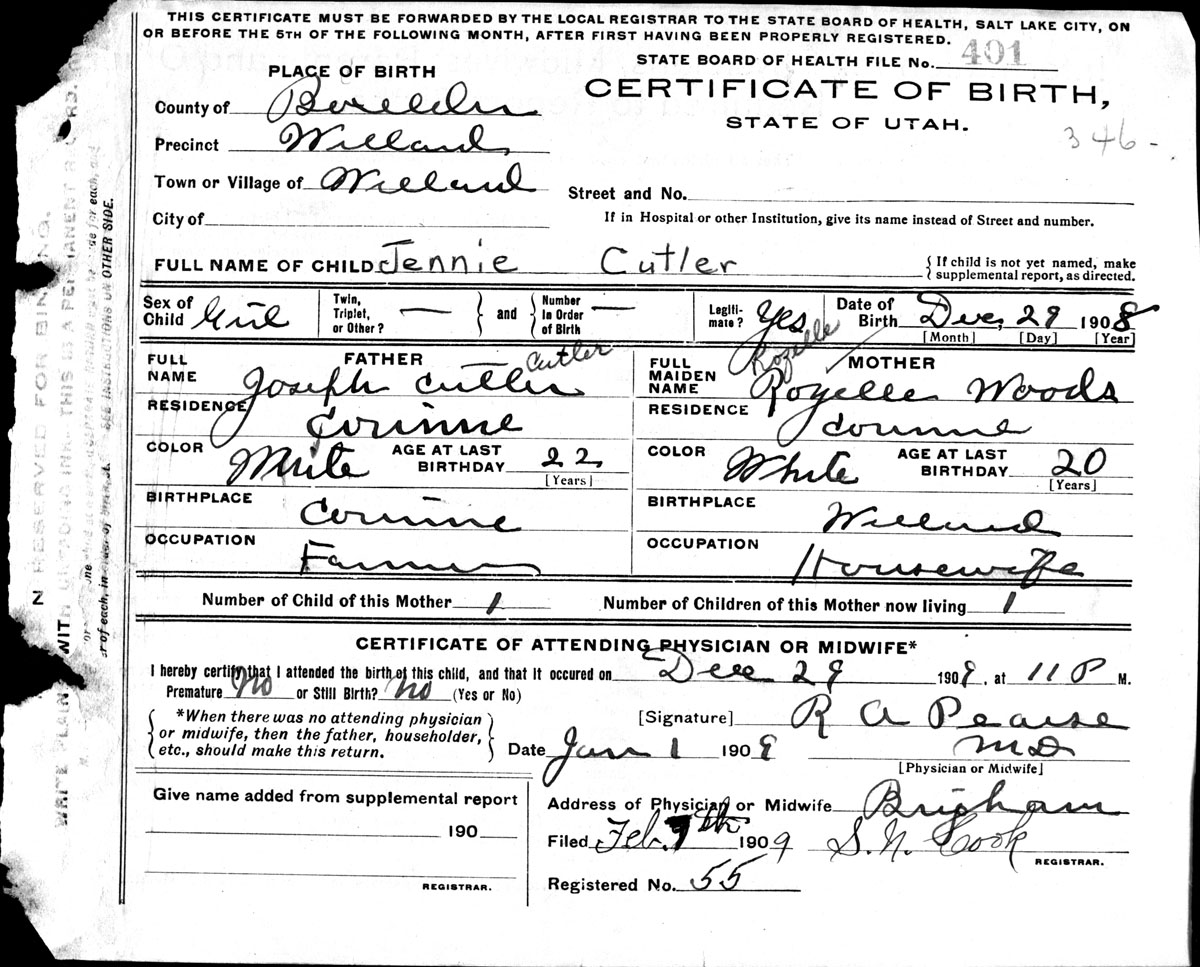 THIS CERTIFICATE MUST BE FORWARDED BY THE LOCAL REGISTRAR TO THE STATE BOARD OF HEALTH, SALT LAKE CITY, ON
OR BEFORE THE 5TH OF THE FOLLOWING MONTH, AFTER FIRST HAVING BEEN PROPERLY REGISTERED.
STATE BOARD OF HEALTH FILE No. 401
PLACE OF BIRTH
CERTIFICATE OF BIRTH,
STATE OF UTAH.
346-
County of Boxelder
Precinct Willard
Town or Village of Willard
Street and No.
City of
If in Hospital or other Institution, give its name instead of Street and number.
FULL NAME OF CHILD Jennie Cutler
{ If child is not yet named, make supplemental report, as directed.
Sex of Child Girl
Twin, Triplet, or Other? — } and { Number in Order of Birth —
Legitimate? Yes
Date of Birth Dec, 29 1908
[Month] [Day] [Year]
FATHER
FULL NAME Joseph Cutler Cutler
RESIDENCE Corinne
COLOR White AGE AT LAST BIRTHDAY 22 [Years]
BIRTHPLACE Corinne
OCCUPATION Farmer
MOTHER
FULL MAIDEN NAME Rozelle Rozelle Woods
RESIDENCE Corinne
COLOR White AGE AT LAST BIRTHDAY 20 [Years]
BIRTHPLACE Willard
OCCUPATION Housewife
Number of Child of this Mother 1 Number of Children of this Mother now living 1
CERTIFICATE OF ATTENDING PHYSICIAN OR MIDWIFE*
I hereby certify that I attended the birth of this child, and that it occured on Dec 29 1908, at 11 P M.
Premature No or Still Birth? No (Yes or No)
{ *When there was no attending physician or midwife, then the father, householder, etc., should make this return. }
[Signature] R A Pearse
Date Jan 1 1909 MD
[Physician or Midwife]
Give name added from supplemental report
190
REGISTRAR.
Address of Physician or Midwife Brigham
Filed Feb. 7th 1909 S. N. Cook
REGISTRAR.
Registered No. 55
N RESERVED FOR BINDING.
SEE INSTRUCTIONS ON OTHER SIDE.